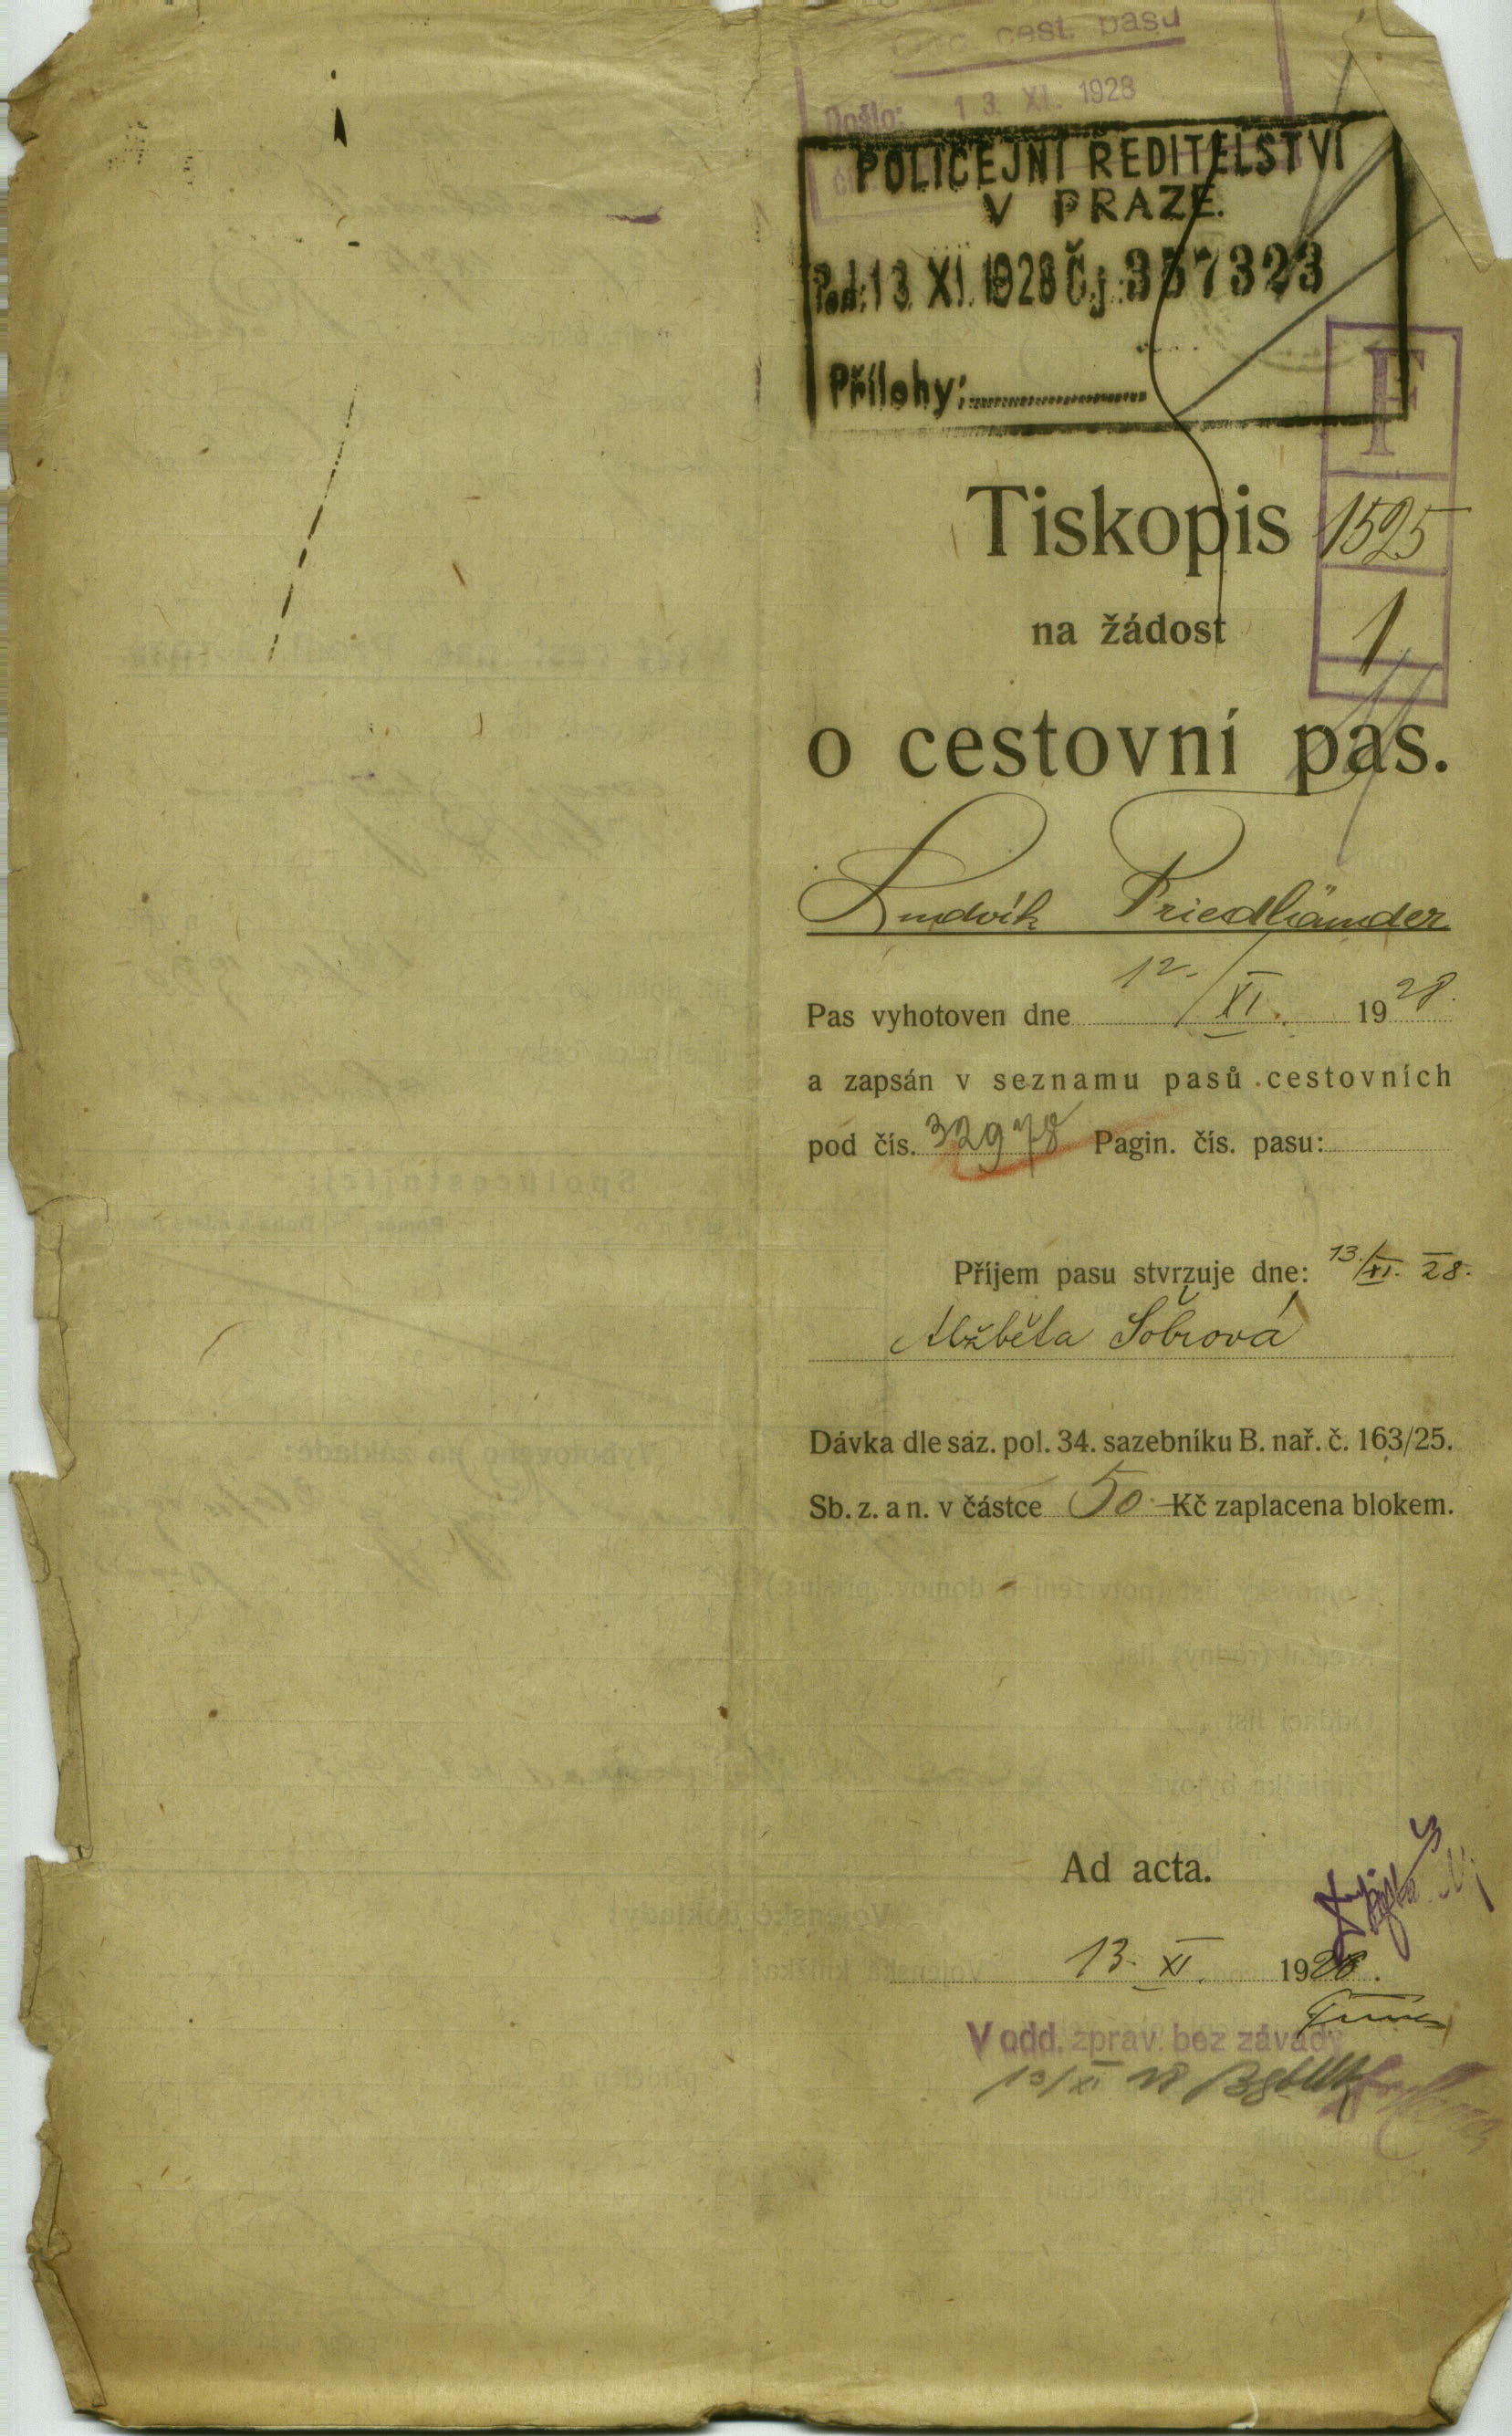 cest. pasů
Došlo: 13. XI. 1928
POLICEJNÍ ŘEDITELSTVÍ
V PRAZE.
Pod: 13. XI. 1928 Čj: 357323
Přílohy:
F
1525
1
Tiskopis
na žádost
o cestovní pas.
Ludvík Friedländer
Pas vyhotoven dne 12./XI. 1928.
a zapsán v seznamu pasů cestovních
pod čís. 32978 Pagin. čís. pasu:
Příjem pasu stvrzuje dne: 13./XI. 28.
Alžběta Šobrová
Dávka dle saz. pol. 34. sazebníku B. nař. č. 163/25.
Sb. z. a n. v částce 50.- Kč zaplacena blokem.
Ad acta.
13. XI. 1928.
V odd. zprav. bez závady
13/XI 28